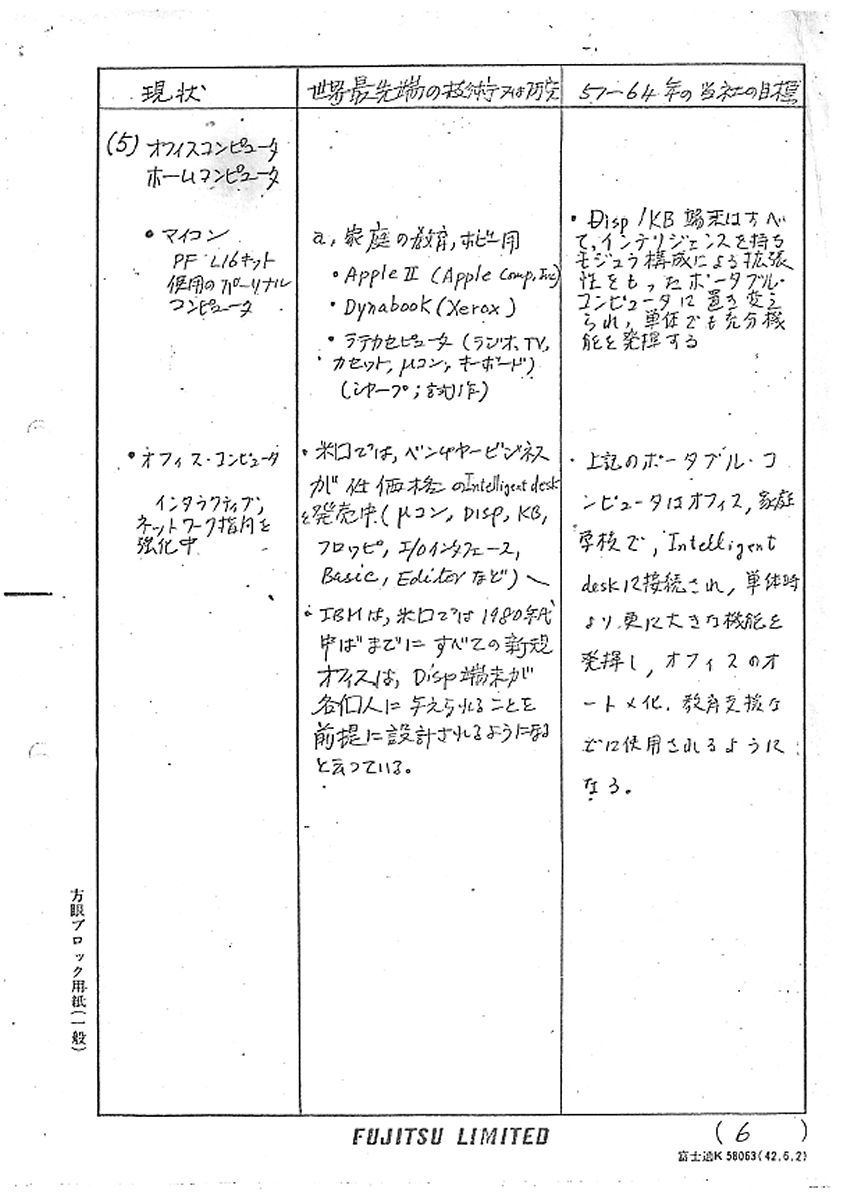 現状
世界最先端の技術又は研究
57～64年の当社の目標
(5) オフィスコンピュータ
ホームコンピュータ
• マイコン
PF L16キット
使用のパーソナル
コンピュータ
a, 家庭の教育, ホビー用
• Apple II (Apple Comp. Inc)
• Dynabook (Xerox)
• ラテカセピュータ (ラジオ, TV,
カセット, μコン, キーボード)
(シャープ; 試作)
• Disp/KB 端末はすべ
て, インテリジェンスを持ち
モジュラ構成による拡張
性をもったポータブル・
コンピュータに置き変え
られ, 単体でも充分機
能を発揮する
• オフィス・コンピュータ
インタラクティブ,
ネットワーク指向を
強化中
• 米国では, ベンチャービジネス
が低価格のIntelligent desk
を発売中 (μコン, Disp, KB,
フロッピ, I/Oインタフェース,
Basic, Editorなど)
• IBMは, 米国では1980年代
中ばまでにすべての新規
オフィスは, Disp端末が
各個人に与えられることを
前提に設計されるようになる
と云っている。
• 上記のポータブル・コ
ンピュータはオフィス, 家庭
学校で, Intelligent
deskに接続され, 単体時
より更に大きな機能を
発揮し, オフィスのオ
ートメ化, 教育支援な
どに使用されるように
なる。
方眼ブロック用紙(一般)
FUJITSU LIMITED
(6)
富士通K 58063(42.6.2)